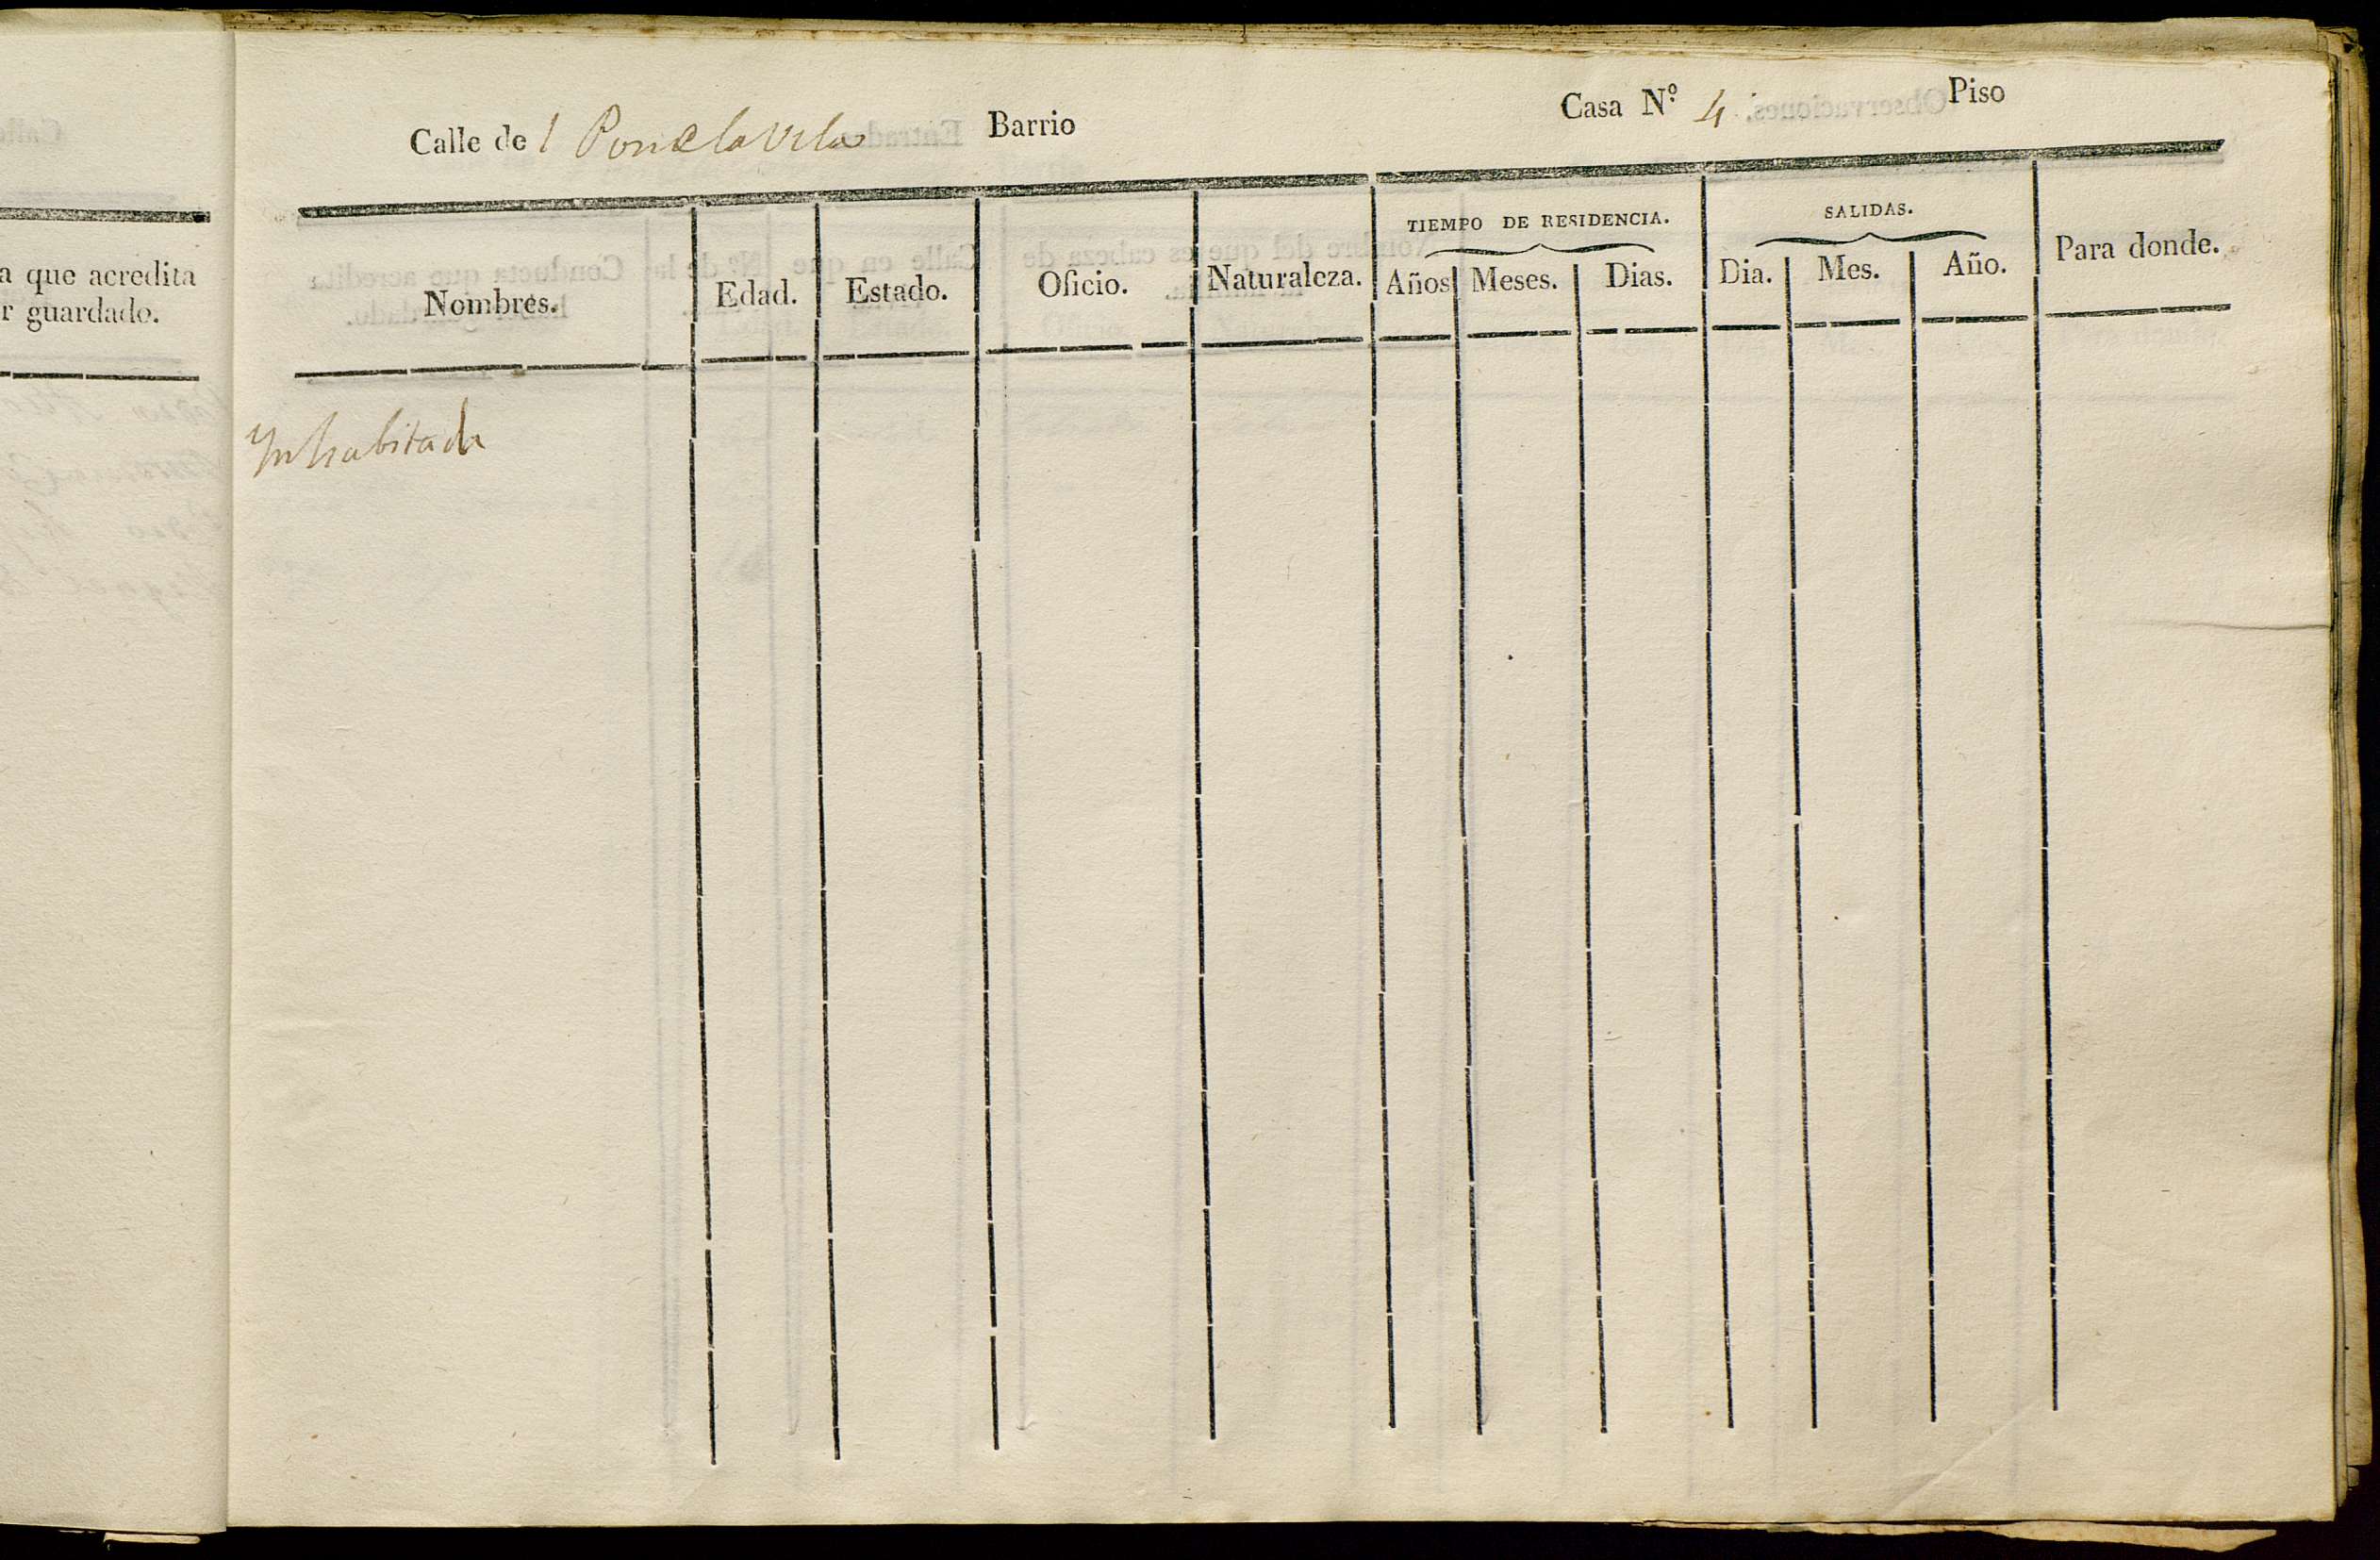 a que acredita
r guardado.
Calle del Ponclavila Barrio Casa N.º 4. Piso
Nombres. Edad. Estado. Oficio. Naturaleza. TIEMPO DE RESIDENCIA. Años Meses. Dias. SALIDAS. Dia. Mes. Año. Para donde.
Ynhabitada